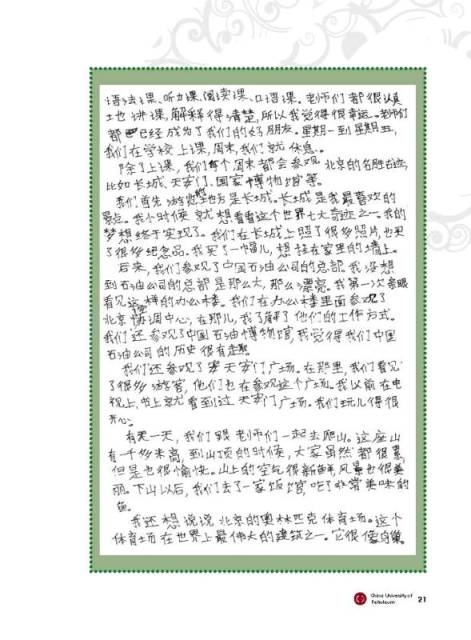 语法课、听力课、阅读课、口语课。老师们都很认真
地讲课,解释得清楚,所以我觉得很幸运。老师们
都已经成为了我们的好朋友。星期一到星期五,
我们在学校上课,周末,我们就休息。
除了上课,我们每个周末都会参观北京的名胜古迹,
比如长城、天安门、国家博物馆等。
我们首先游览的地方是长城。长城是我最喜欢的
景点。我小时候就想看看这个世界七大奇迹之一。我的
梦想终于实现了。我们在长城上照了很多照片,也买
了很多纪念品。我买了一幅儿,想挂在家里的墙上。
后来,我们参观了中国石油公司的总部。我没想
到石油公司的总部是那么大,那么漂亮。我第一次亲眼
看见这样的办公楼。我们在办公楼里面参观了
北京协调中心,在那儿,我了解了他们的工作方式。
我们还参观了中国石油博物馆,我觉得我们中国
石油公司的历史很有趣。
我们还参观了天安门广场。在那里,我们看见
了很多游客,他们也在参观这个广场。我以前在电
视上、书上就看到过天安门广场。我们玩儿得很
开心。
有一天,我们跟老师们一起去爬山。这座山
有一千多米高,到山顶的时候,大家虽然都很累,
但是也很愉快。山上的空气很新鲜,风景也很美
丽。下山以后,我们去了一家饭馆,吃了非常美味的
鱼。
我还想说说北京的奥林匹克体育场。这个
体育场在世界上最伟大的建筑之一。它很像鸟巢。
China University of
Petroleum
21